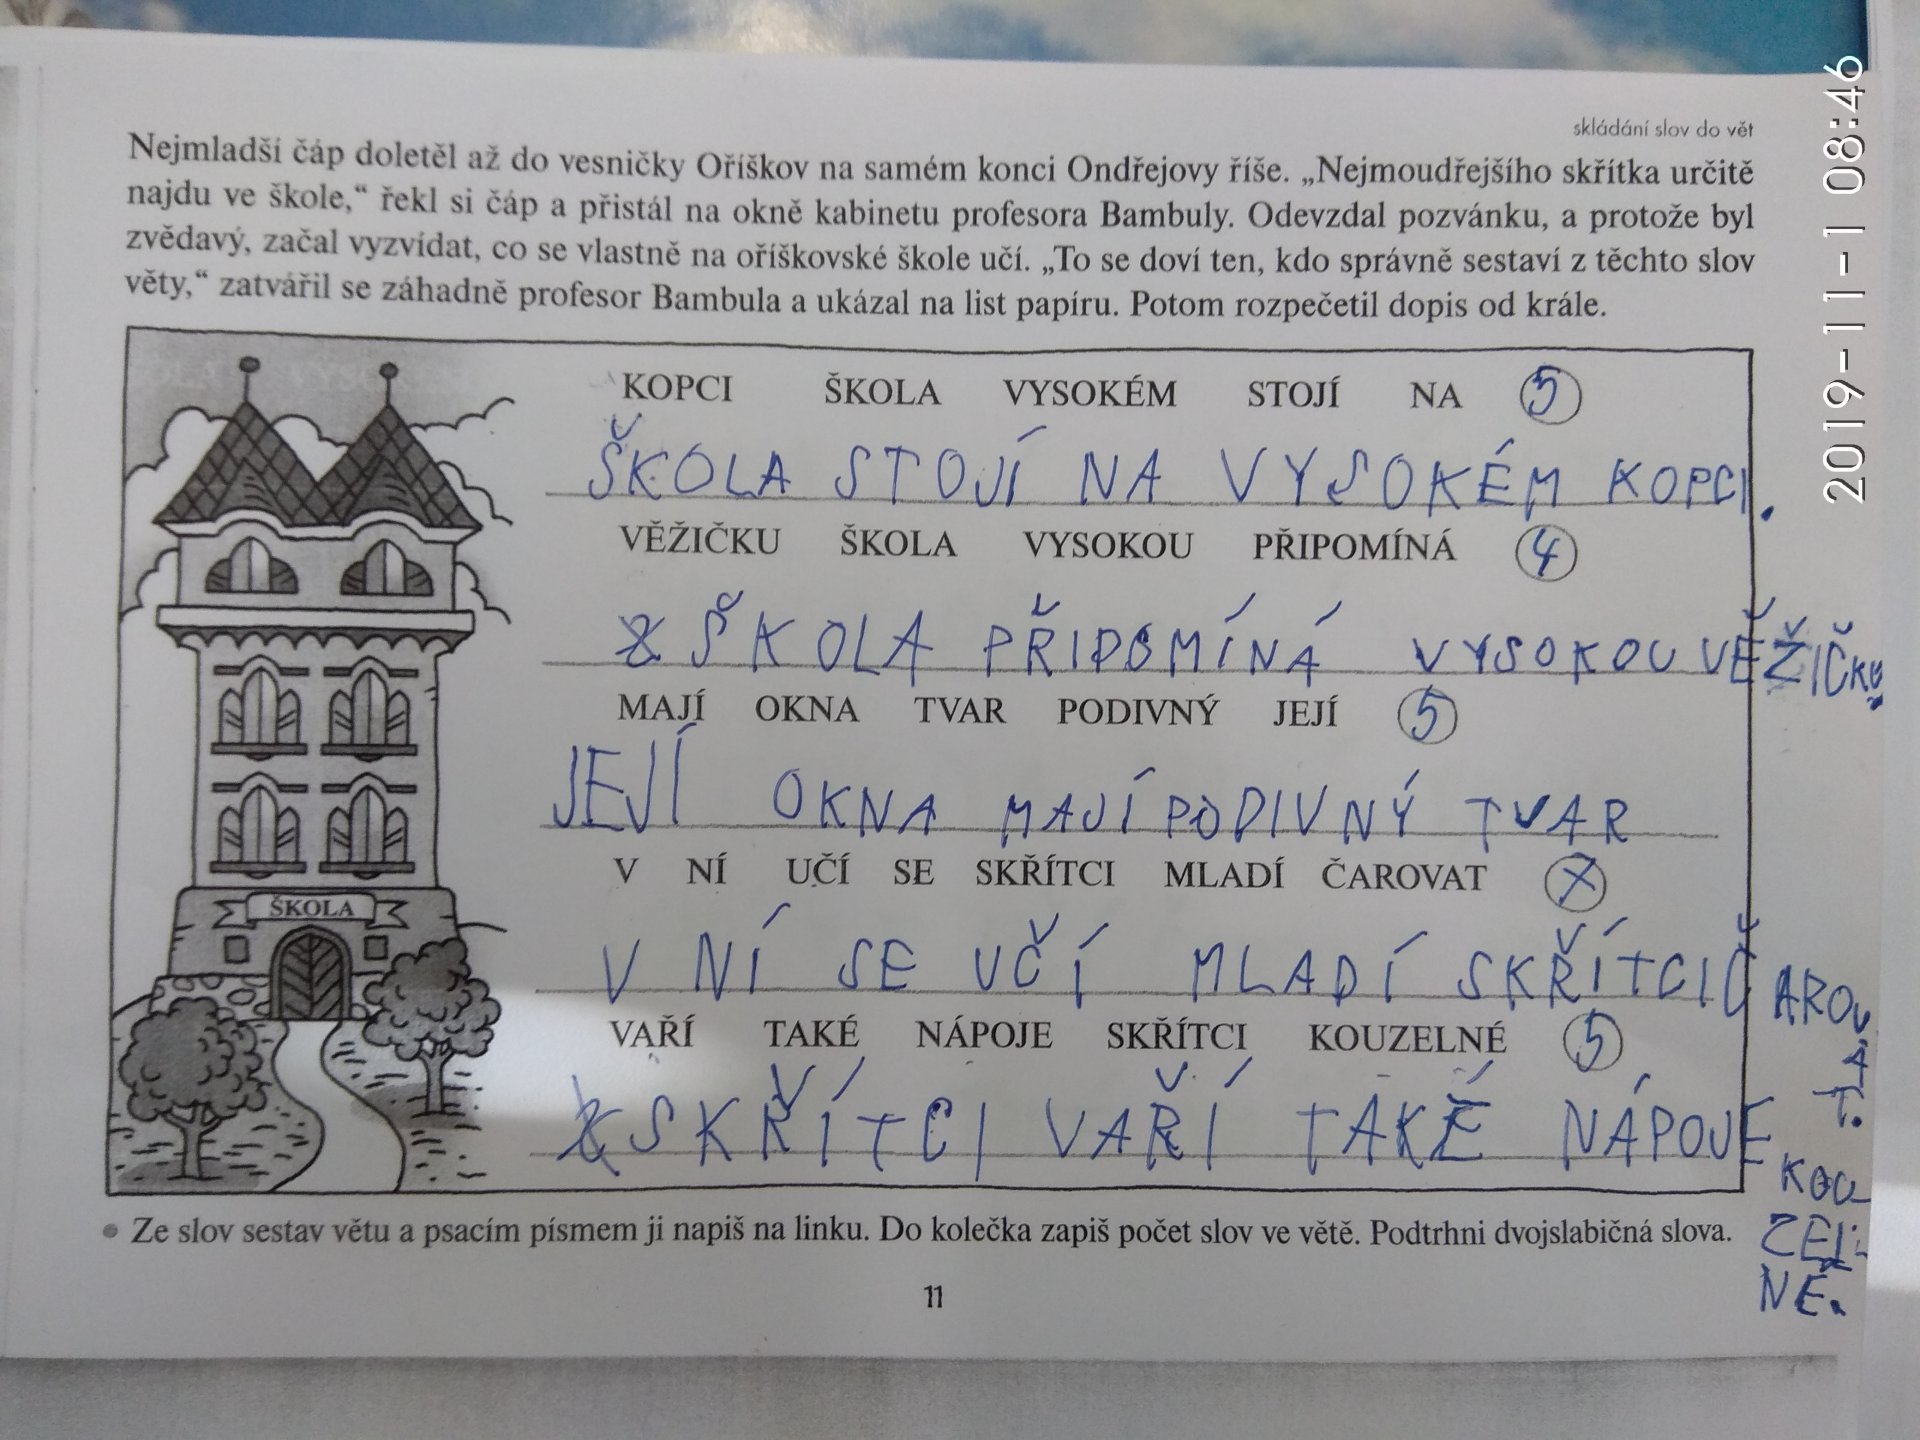 skládání slov do vět
Nejmladší čáp doletěl až do vesničky Oříškov na samém konci Ondřejovy říše. „Nejmoudřejšího skřítka určitě
najdu ve škole,“ řekl si čáp a přistál na okně kabinetu profesora Bambuly. Odevzdal pozvánku, a protože byl
zvědavý, začal vyzvídat, co se vlastně na oříškovské škole učí. „To se doví ten, kdo správně sestaví z těchto slov
věty,“ zatvářil se záhadně profesor Bambula a ukázal na list papíru. Potom rozpečetil dopis od krále.
KOPCI ŠKOLA VYSOKÉM STOJÍ NA 5
ŠKOLA STOJÍ NA VYSOKÉM KOPCI.
VĚŽIČKU ŠKOLA VYSOKOU PŘIPOMÍNÁ 4
ŠKOLA PŘIPOMÍNÁ VYSOKOU VĚŽIČKU.
MAJÍ OKNA TVAR PODIVNÝ JEJÍ 5
JEJÍ OKNA MAJÍ PODIVNÝ TVAR
V NÍ UČÍ SE SKŘÍTCI MLADÍ ČAROVAT 7
V NÍ SE UČÍ MLADÍ SKŘÍTCI ČAROVAT.
ŠKOLA
VAŘÍ TAKÉ NÁPOJE SKŘÍTCI KOUZELNÉ 5
SKŘÍTCI VAŘÍ TAKÉ NÁPOJE
KOU
ZEL
NÉ.
• Ze slov sestav větu a psacím písmem ji napiš na linku. Do kolečka zapiš počet slov ve větě. Podtrhni dvojslabičná slova.
11
2019-11-1 08:46